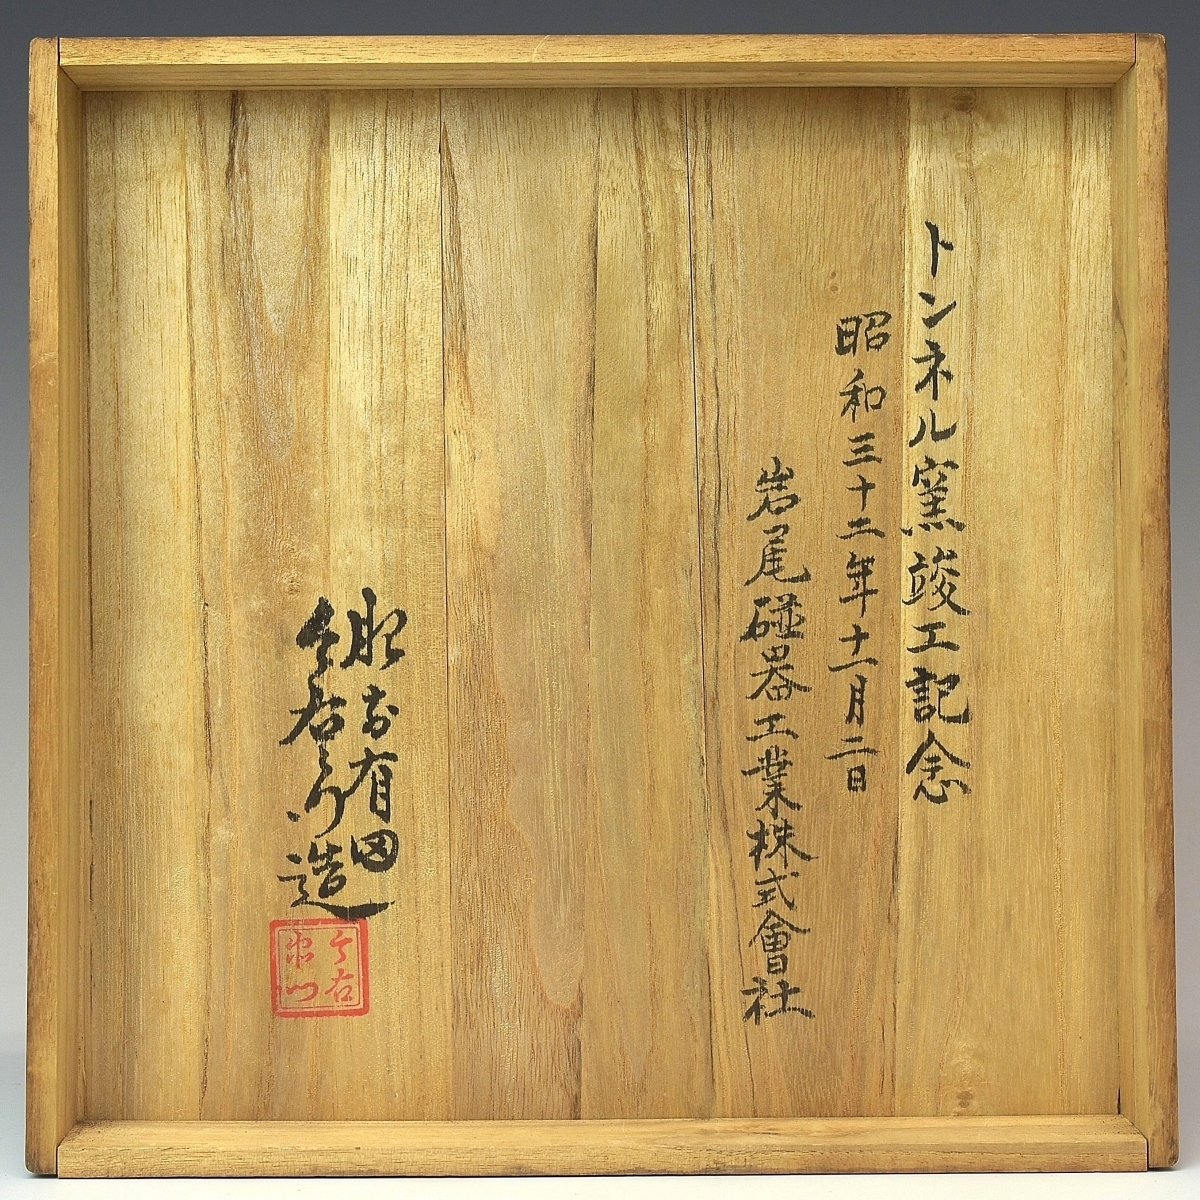 トンネル窯竣工記念
昭和三十二年十一月二日
岩尾磁器工業株式會社
於有田
今右衛門造
今右衛門